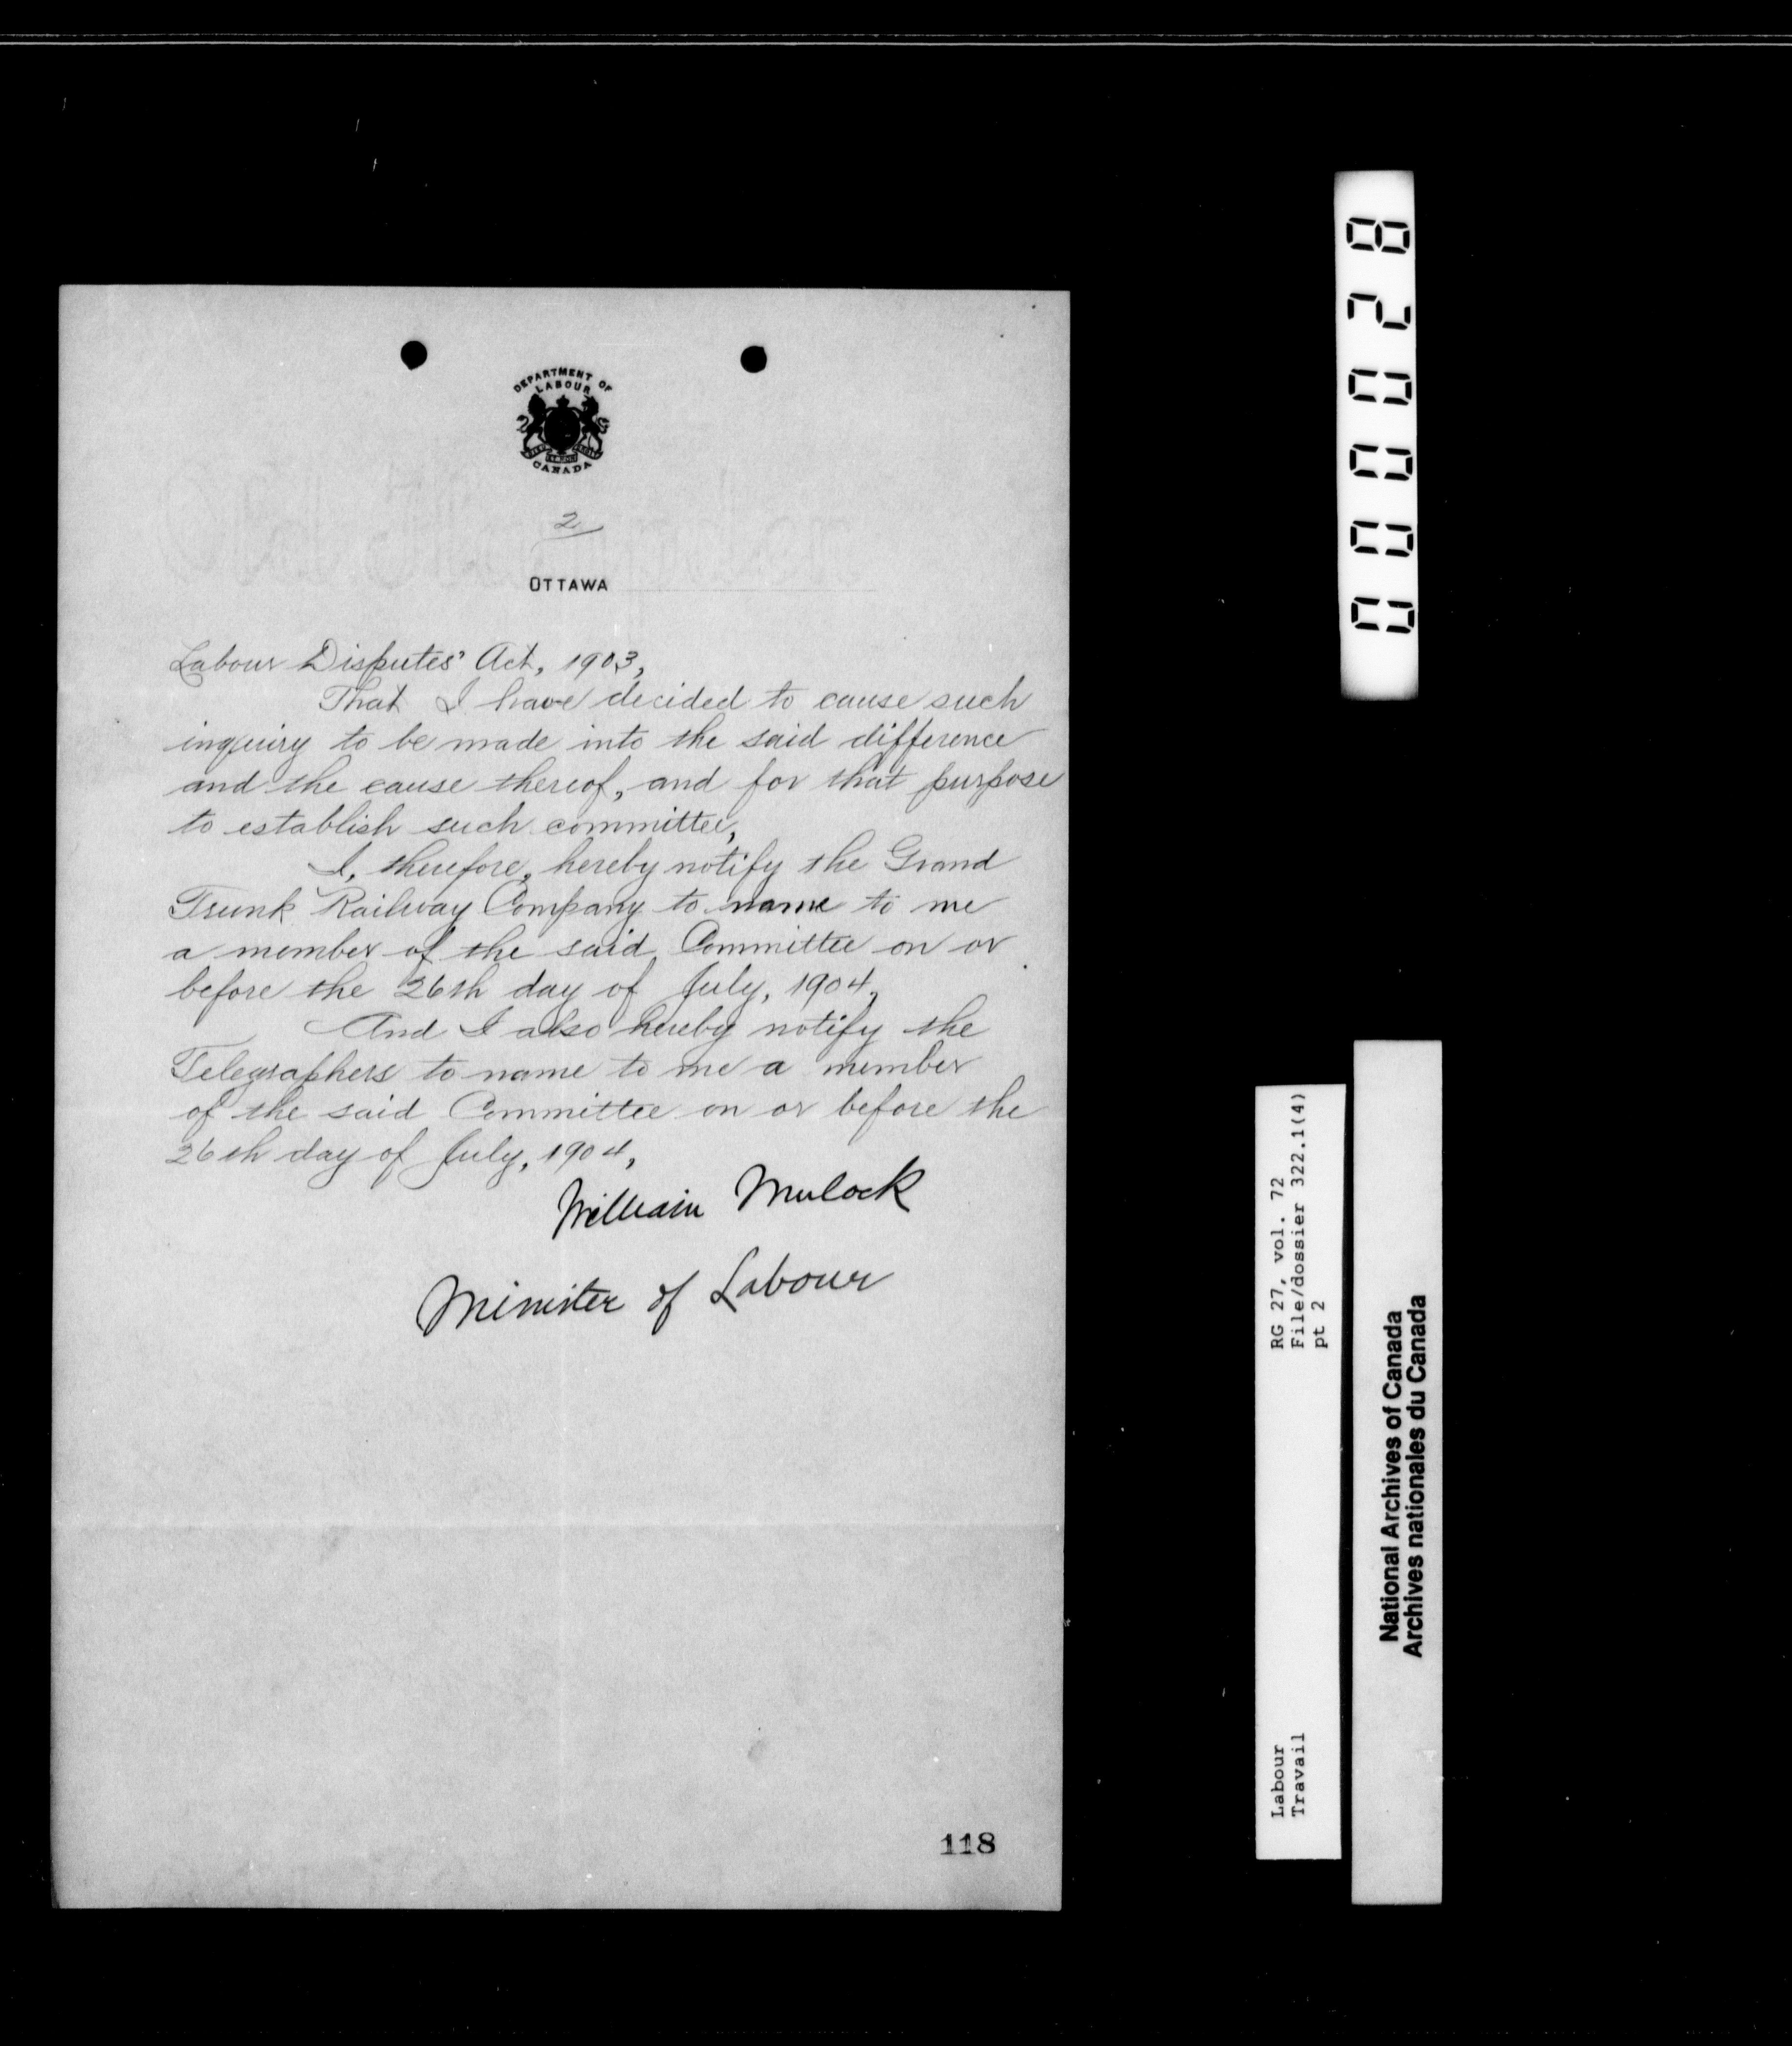 DEPARTMENT OF
LABOUR
CANADA
2
OTTAWA
Labour Disputes' Act, 1903,
That I have decided to cause such
inquiry to be made into the said difference
and the cause thereof, and for that purpose
to establish such committee,
I, therefore, hereby notify the Grand
Trunk Railway Company to name to me
a member of the said Committee on or
before the 26th day of July, 1904,
And I also hereby notify the
Telegraphers to name to me a member
of the said Committee on or before the
26th day of July, 1904,
William Mulock
Minister of Labour
118
000028
Labour
Travail
RG 27, vol. 72
File/dossier 322.1(4)
pt 2
National Archives of Canada
Archives nationales du Canada